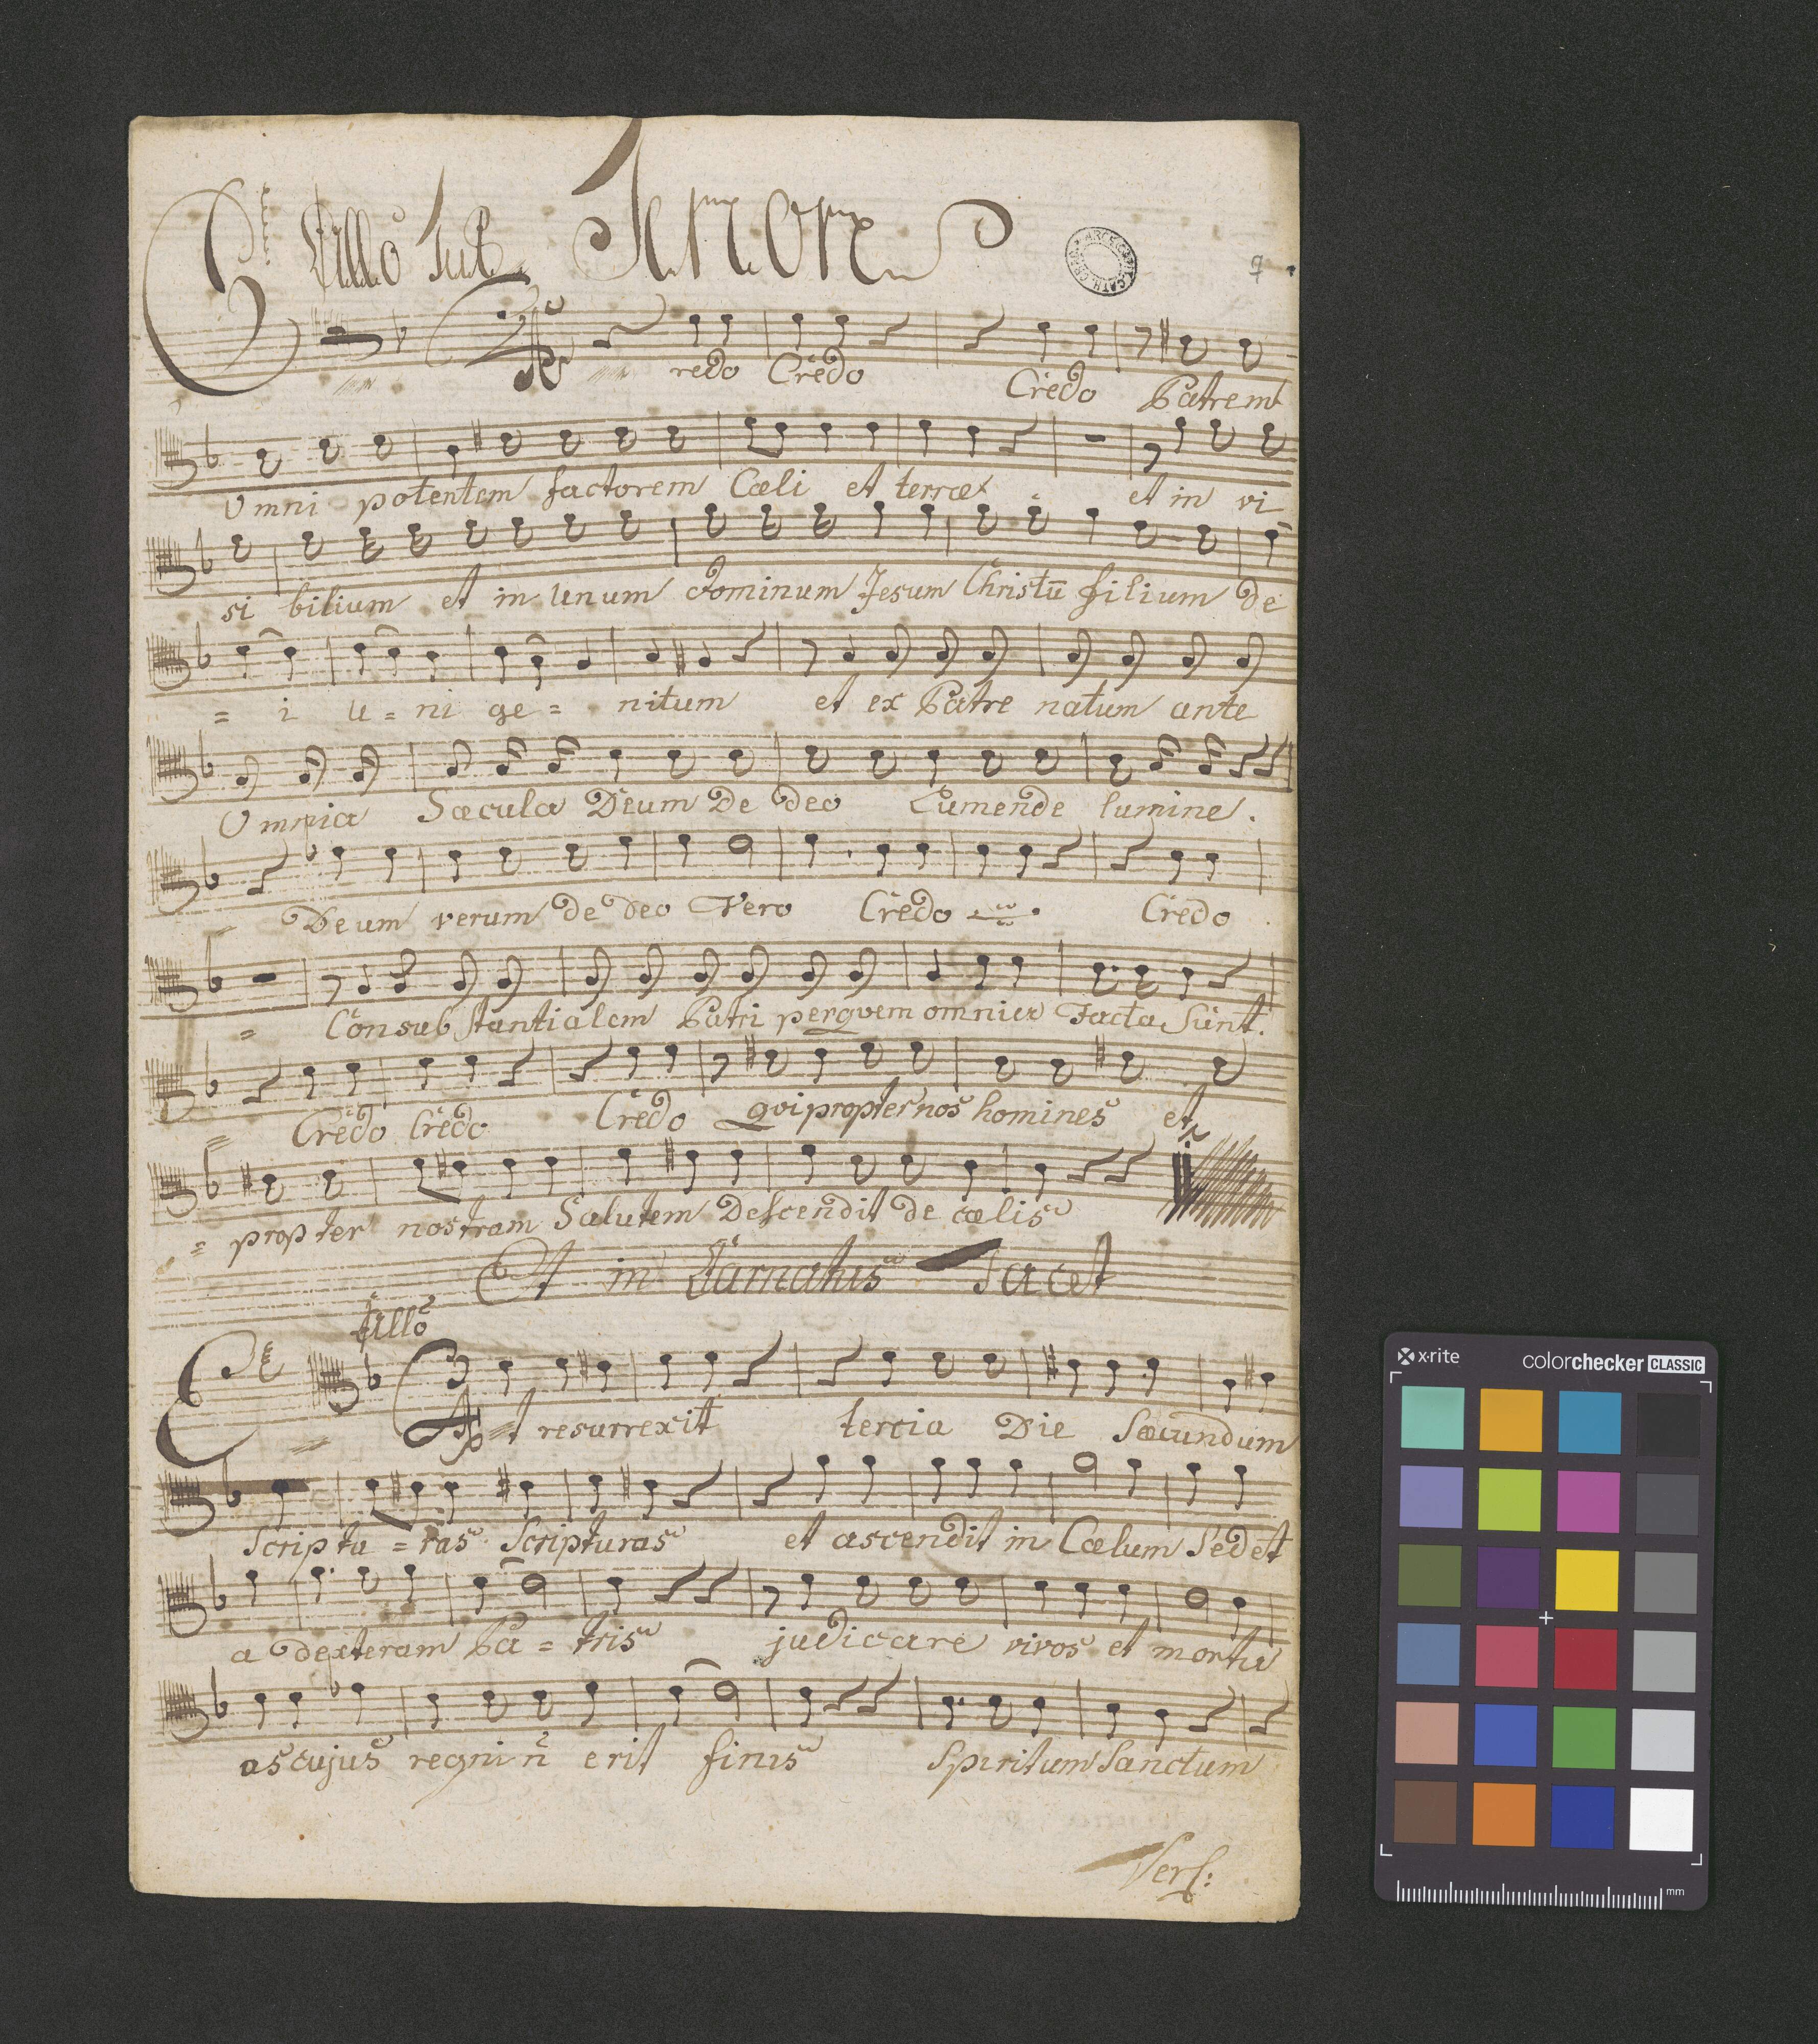 Tenore
redo Credo Credo Patrem
Omni potentem factorem Cœli et terræ et in vi
si bilium et in Unum dominum Jesum Christū filium de
= i u = ni ge = nitum et ex Patre natum ante
Omnia Sæcula Deum De deo Lumen de lumine.
Deum verum de deo Vero Credo Credo
= Consubstantialem Patri perqvem omnia Facta Sunt.
= Credo Credo Credo qvi propter nos homines et
= propter nostram Salutem Descendit de cœlis
Et in Carnatus Tacet
Allo
Et resurrexit tertia Die Sæcundum
Scriptu = ras Scripturas et ascendit in Cœlum Sedet
a dexteram Pa = tris judicare vivos et mortu
os cujus regni n̄ erit finis Spiritum Sanctum
Vers:
x-rite colorchecker CLASSIC
mm